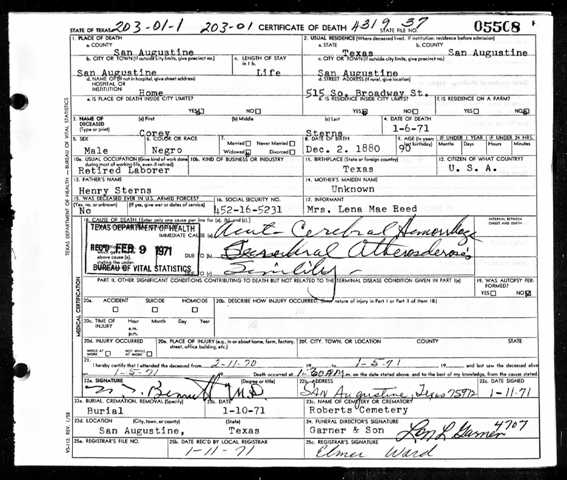 STATE OF TEXAS 203-01-1 203-01 CERTIFICATE OF DEATH 4319 37 STATE FILE NO. 05508
1. PLACE OF DEATH
a. COUNTY
San Augustine
2. USUAL RESIDENCE (Where deceased lived. If institution: residence before admission)
a. STATE
Texas
b. COUNTY
San Augustine
b. CITY OR TOWN (If outside city limits, give precinct no.)
San Augustine
c. LENGTH OF STAY in 1 b.
Life
c. CITY OR TOWN (If outside city limits, give precinct no.)
San Augustine
d. NAME OF (If not in hospital, give street address) HOSPITAL OR INSTITUTION
Home
d. STREET ADDRESS (If rural, give location)
515 So. Broadway St.
e. IS PLACE OF DEATH INSIDE CITY LIMITS?
YES NO
e. IS RESIDENCE INSIDE CITY LIMITS?
YES NO
f. IS RESIDENCE ON A FARM?
YES NO
3. NAME OF DECEASED (Type or print)
(a) First
Corey
(b) Middle
(c) Last
Sterns
4. DATE OF DEATH
1-6-71
5. SEX
Male
6. COLOR OR RACE
Negro
7. Married Never Married
Widowed Divorced
8. DATE OF BIRTH
Dec. 2. 1880
9. AGE (In years last birthday)
90
IF UNDER 1 YEAR
Months Days
IF UNDER 24 HRS.
Hours Min.
10a. USUAL OCCUPATION (Give kind of work done during most of working life, even if retired)
Retired Laborer
10b. KIND OF BUSINESS OR INDUSTRY
11. BIRTHPLACE (State or foreign country)
Texas
12. CITIZEN OF WHAT COUNTRY?
U. S. A.
13. FATHER'S NAME
Henry Sterns
14. MOTHER'S MAIDEN NAME
Unknown
15. WAS DECEASED EVER IN U.S. ARMED FORCES?
(Yes, no, or unknown) (If yes, give war or dates of service)
No
16. SOCIAL SECURITY NO.
452-16-5231
17. INFORMANT
Mrs. Lena Mae Reed
18. CAUSE OF DEATH
INTERVAL BETWEEN ONSET AND DEATH
TEXAS DEPARTMENT OF HEALTH
REC'D FEB 9 1971
BUREAU OF VITAL STATISTICS
IMMEDIATE CAUSE (a) Acute Cerebral Hemorrhage
DUE TO
Senility
PART II. OTHER SIGNIFICANT CONDITIONS CONTRIBUTING TO DEATH BUT NOT RELATED TO THE TERMINAL DISEASE CONDITION GIVEN IN PART I (a)
19. WAS AUTOPSY PERFORMED?
YES NO
20a. ACCIDENT SUICIDE HOMICIDE
20b. DESCRIBE HOW INJURY OCCURRED. (Enter nature of injury in Part I or Part II of item 18)
20c. TIME OF INJURY
Hour Month Day Year
a.m.
p.m.
20d. INJURY OCCURRED
WHILE AT WORK NOT WHILE AT WORK
20e. PLACE OF INJURY (e.g. in or about home, farm, factory, street, office building, etc.)
20f. CITY, TOWN, OR LOCATION COUNTY STATE
21. I hereby certify that I attended the deceased from 2-11-70 to 1-5-71
1-5-71 Death occurred at
m. on the date stated above; and to the best of my knowledge, from the causes stated
22a. SIGNATURE (Degree or title)
Bennett M.D.
22b. ADDRESS
San Augustine, Texas
22c. DATE SIGNED
1-11-71
23a. BURIAL, CREMATION, REMOVAL (Specify)
Burial
23b. DATE
1-10-71
23c. NAME OF CEMETERY OR CREMATORY
Roberts Cemetery
23d. LOCATION (City, town, or county) (State)
San Augustine, Texas
24. FUNERAL DIRECTOR'S SIGNATURE
Garner & Son Garner 4707
25a. REGISTRAR'S FILE NO.
25b. DATE REC'D BY LOCAL REGISTRAR
1-11-71
25c. REGISTRAR'S SIGNATURE
Elmer Ward
TEXAS DEPARTMENT OF HEALTH — BUREAU OF VITAL STATISTICS
MEDICAL CERTIFICATION
VS-112, REV. 1/58